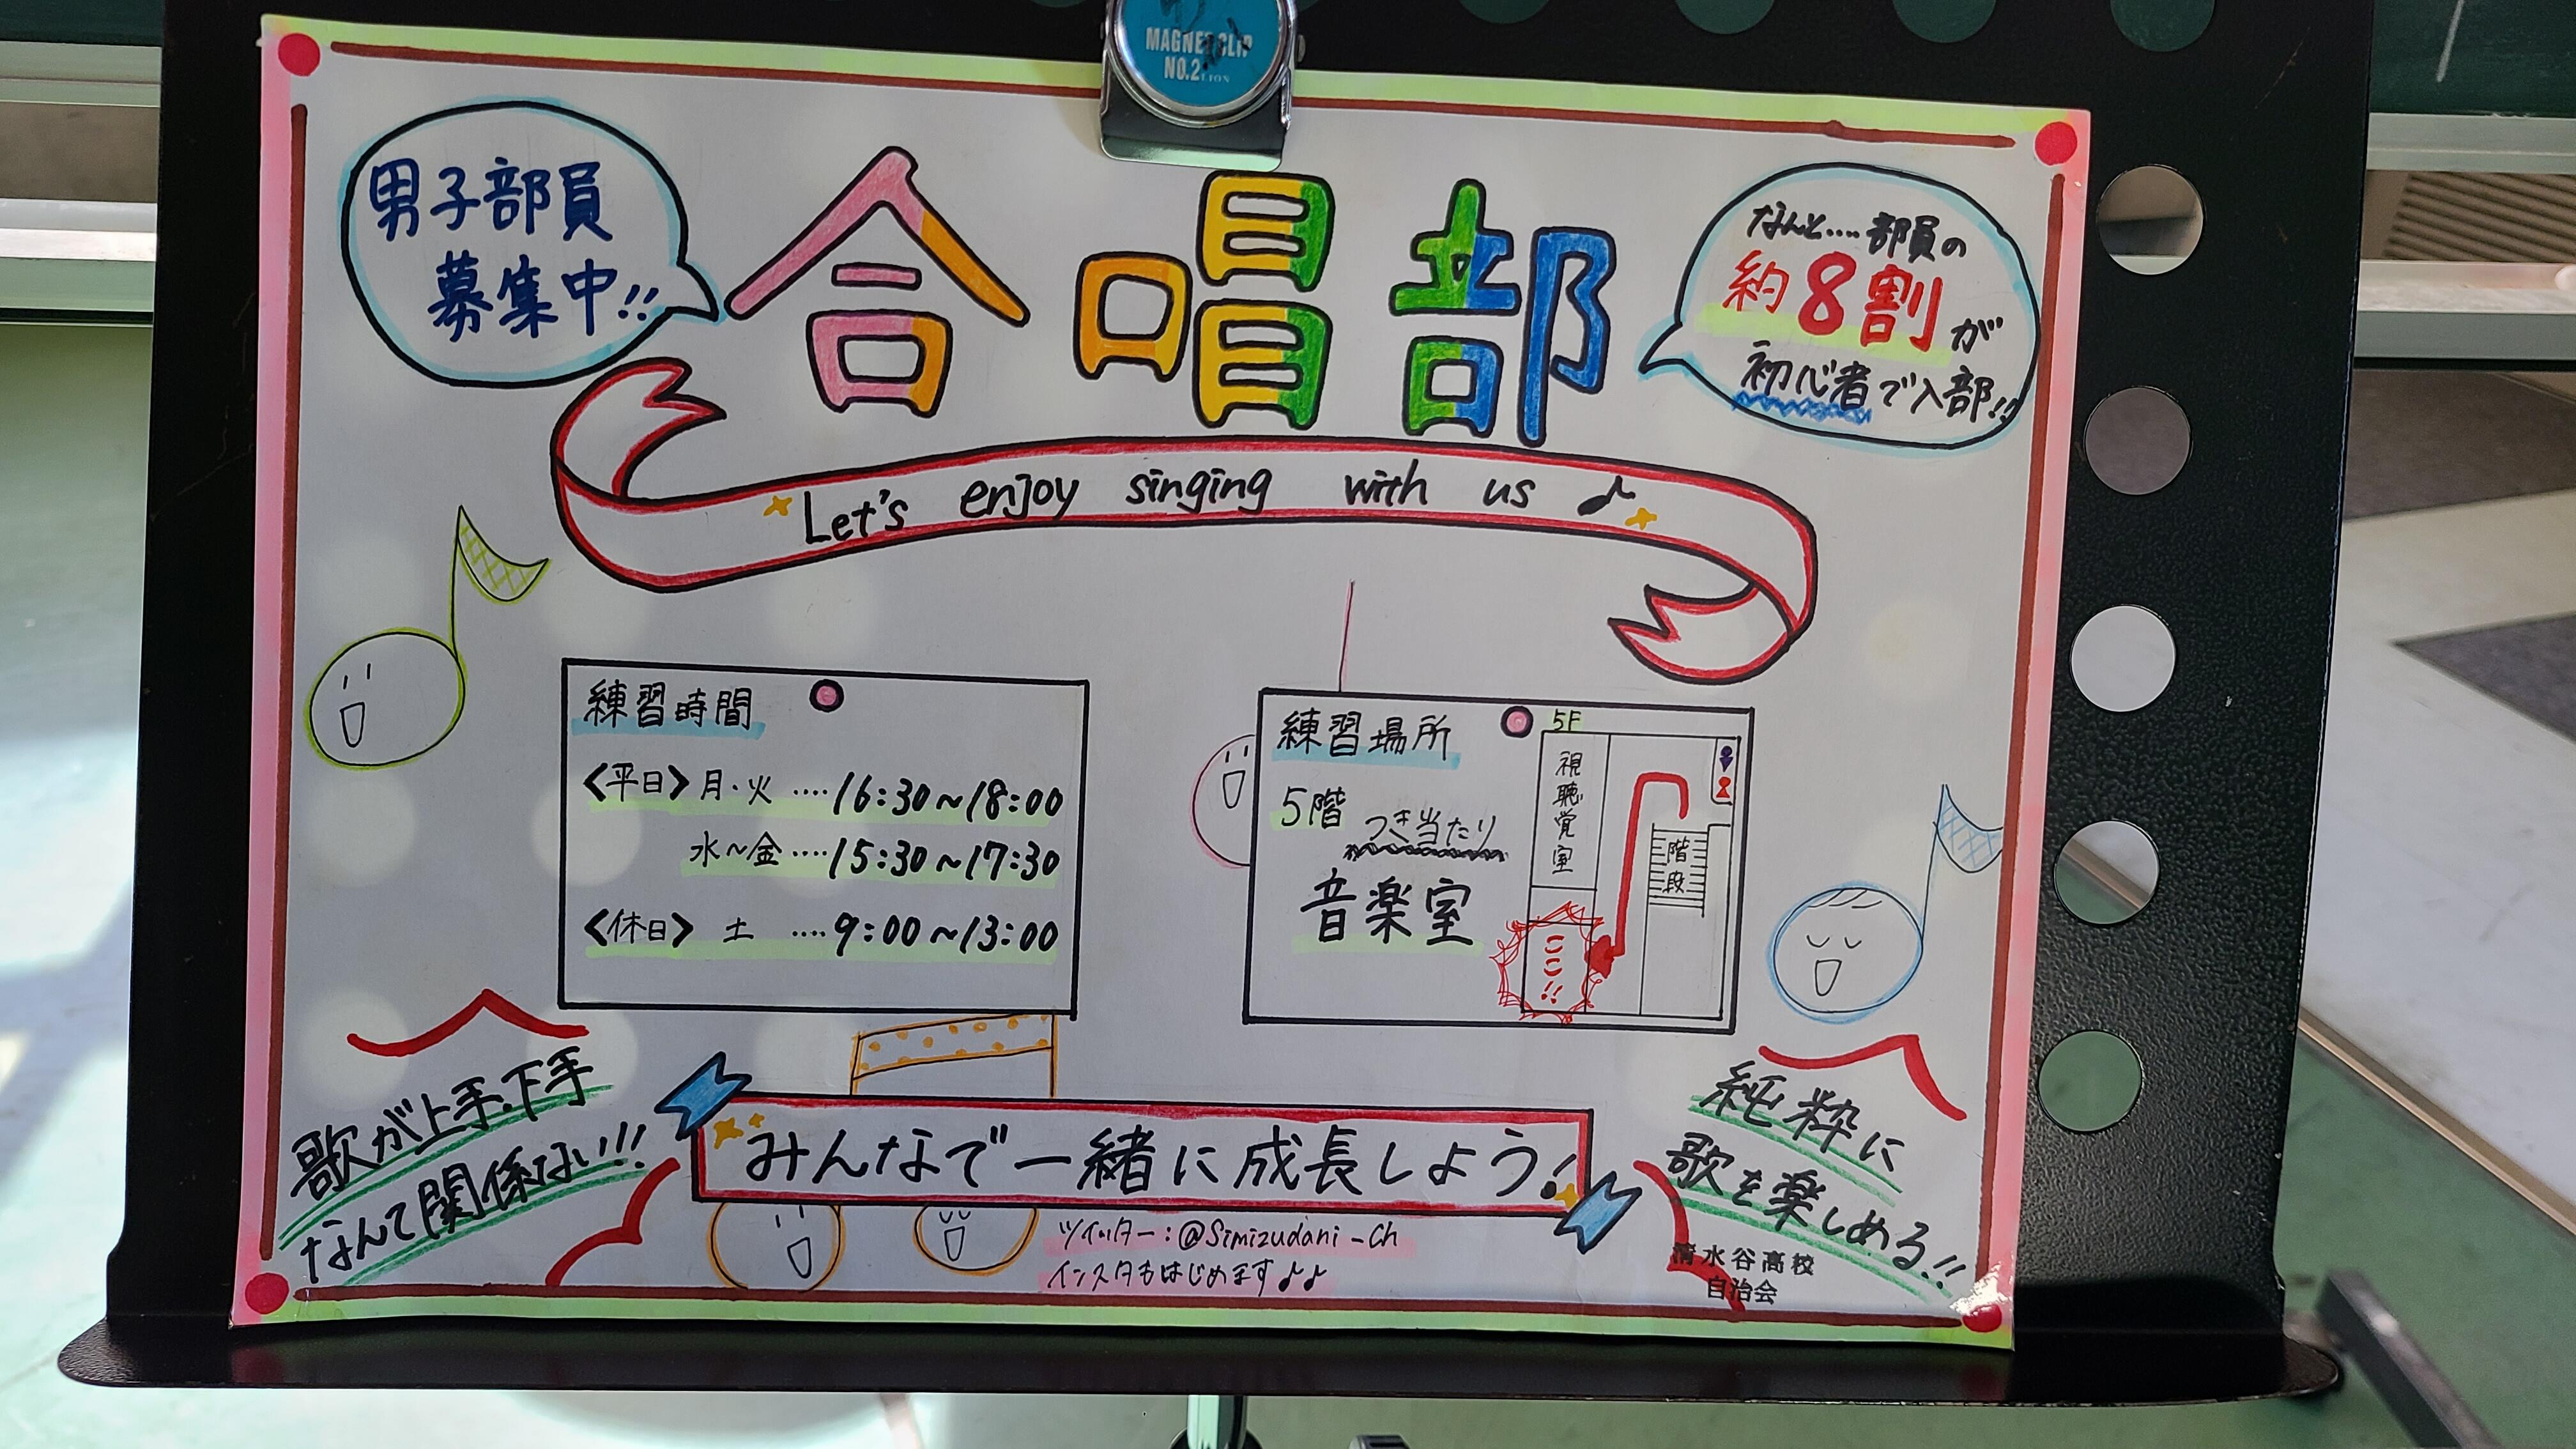 MAGNET CLIP
NO.2 LION
男子部員
募集中!!
合唱部
なんと‥‥部員の
約8割が
初心者で入部!!
Let's enjoy singing with us♪
練習時間
<平日>月・火‥‥16:30~18:00
水~金‥‥15:30~17:30
<休日> 土 ‥‥9:00~13:00
練習場所
5階
つき当たり
音楽室
5F
視聴覚室
階段
ここ!!
歌が上手・下手
なんて関係ない!!
みんなで一緒に成長しよう!
純粋に
歌を楽しめる!!
ツイッター:@Simizudani_Ch
インスタもはじめます♪♪
清水谷高校
自治会